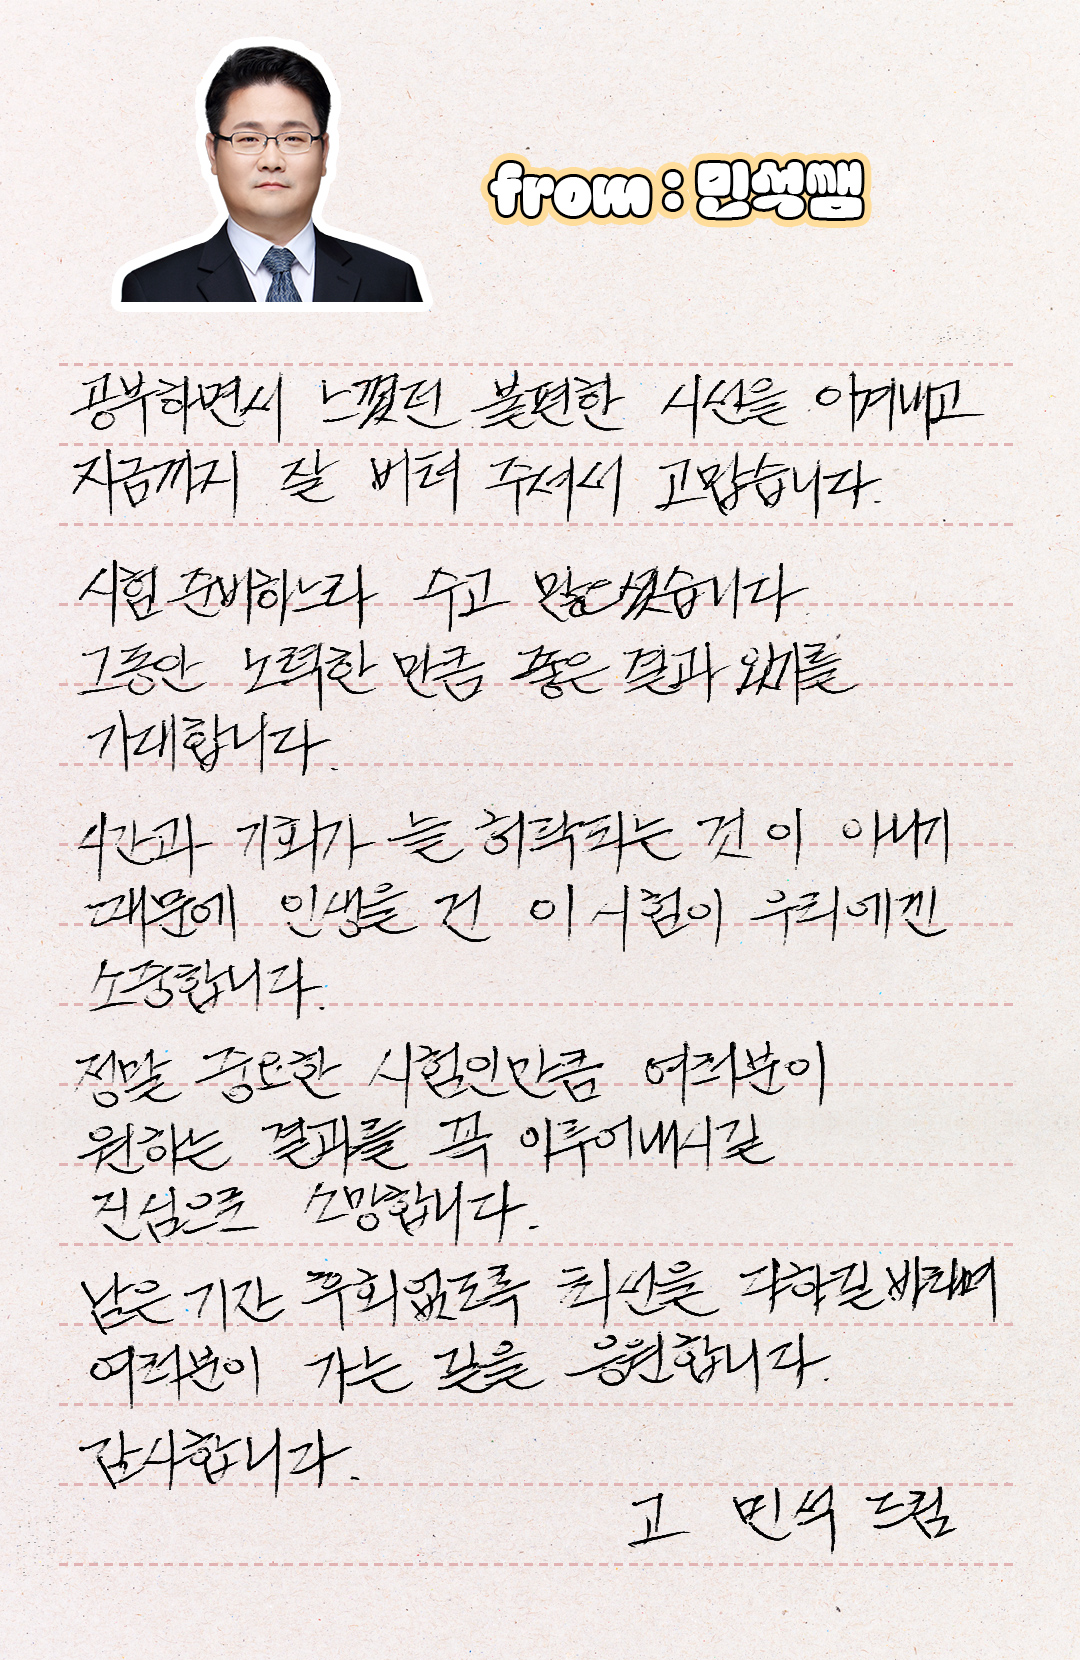 from : 민석쌤
공부하면서 느꼈던 불편한 시선을 이겨내고
지금까지 잘 버텨 주셔서 고맙습니다.
시험 준비하느라 수고 많으셨습니다
그동안 노력한 만큼 좋은 결과 있기를
기대합니다.
시간과 기회가 늘 허락되는 것이 아니기
때문에 인생을 건 이 시험이 우리에겐
소중합니다.
정말 중요한 시험인만큼 여러분이
원하는 결과를 꼭 이루어내시길
진심으로 소망합니다.
남은 기간 후회없도록 최선을 다하길 바라며
여러분이 가는 길을 응원합니다.
감사합니다.
고 민석 드림